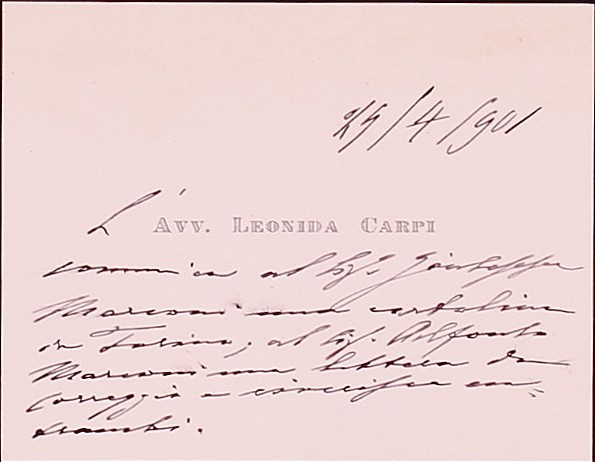 29/4/901
L' Avv. Leonida Carpi
comunica al Sig. Giuseppe
Marconi una cartolina
da Torino, al Sig. Alfonso
Marconi una lettera da
Correggio e riverisce en=
trambi.